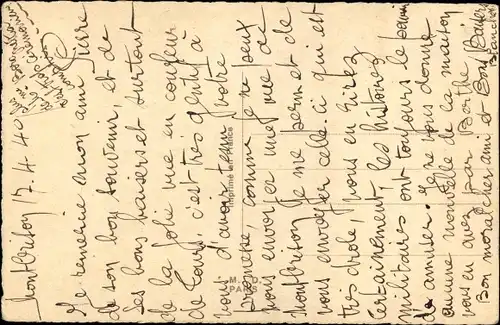 Montbrison 17.4.40
Je remercie mon ami Pierre
de son bon souvenir, et de
ses bons baisers et surtout
de la jolie vue en couleur
de Tours, c'est très gentil à
vous d'avoir tenu votre
promesse, comme je ne peux
vous envoyer une vue de
Montbrison je me permet de
vous envoyer celle-ci qui est
très drôle, vous en rirez
certainement, les histoires
militaires ont toujours le
d'amuser. Je ne vous donne
aucune nouvelle de la maison
vous en avez par Berthe
Bon mon cher ami et Bons Baisers
Imprimé en France
M. D.
PARIS